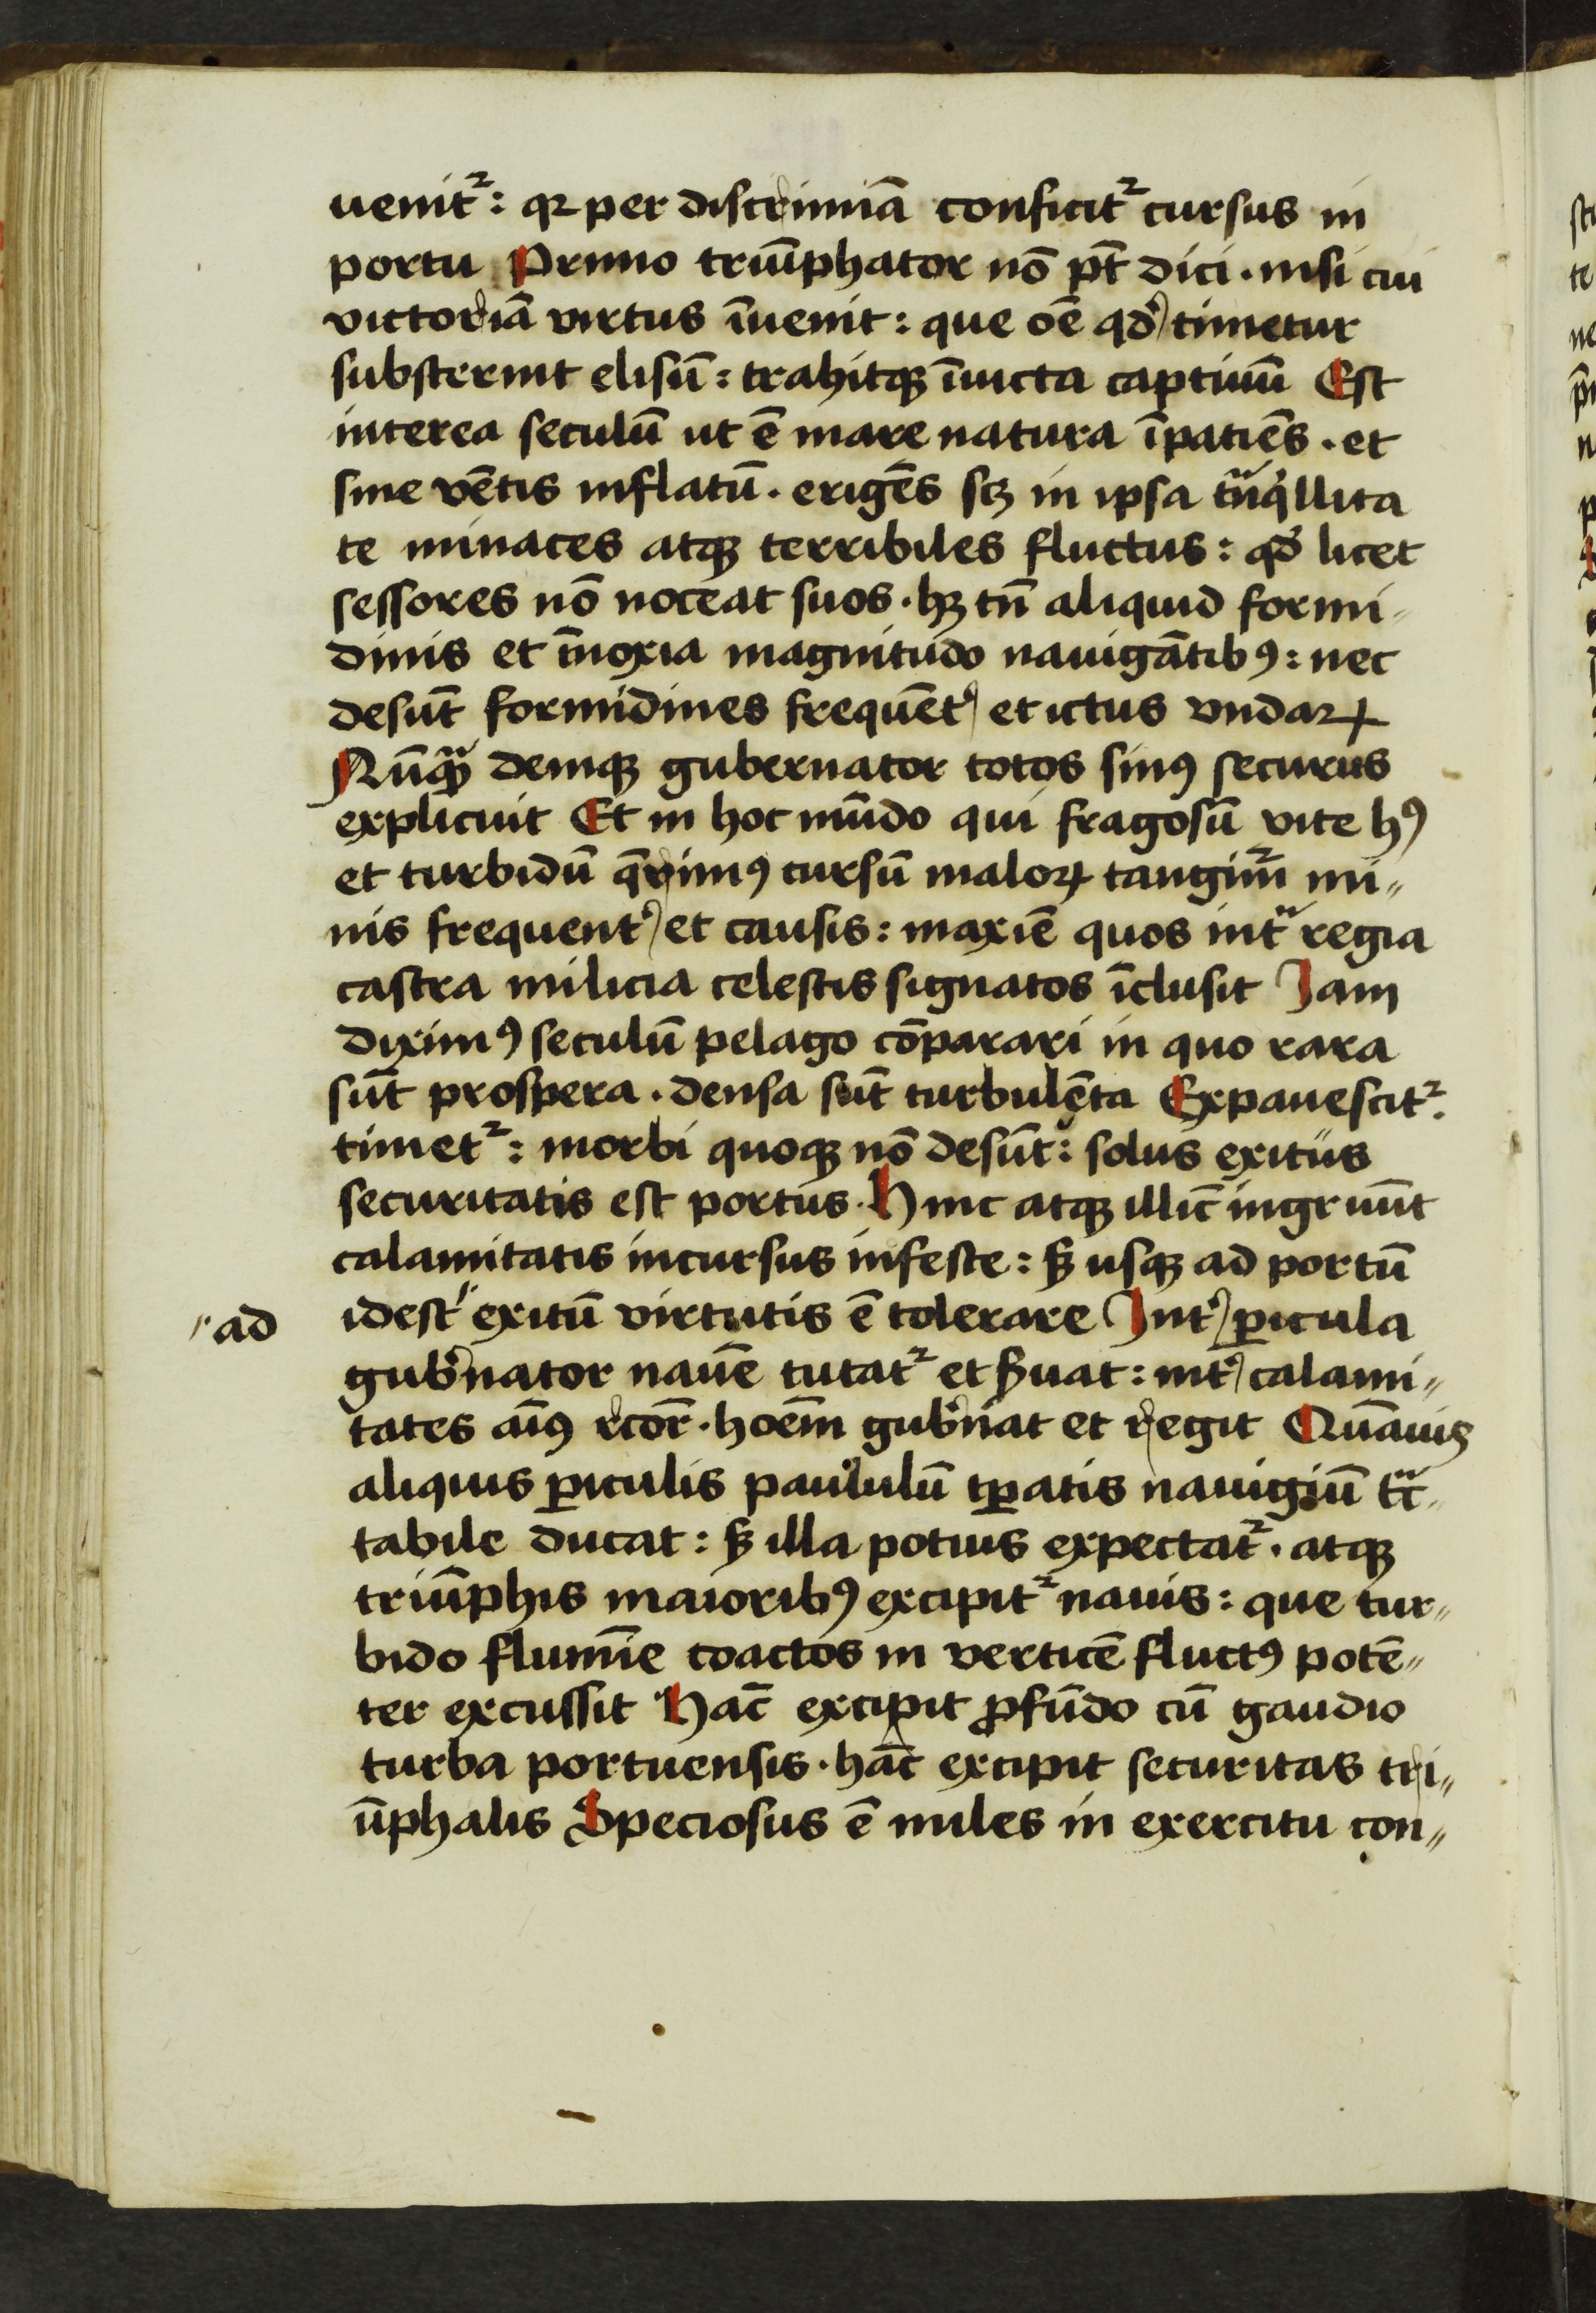 uenit᷑: qꝛ per discrimiā conficit᷑ cursus in
portu Primo triūphator nō pt̄ dici · nisi cui
victoriā virtus īuenit: que oē qd̛ timetur
substernit elisū: trahitqꝫ īuicta captiuū Est
interea seculū ut ē mare natura īpatiēs · et
sine vētis inflatū · erigēs sꝫ in ipsa tͣnqͥllita
te minaces atqꝫ terribiles fluctus: qd̛ licet
sessores nō noceat suos · hꝫ tn̄ aliquid formi-
dinis et īnoxia magnitudo nauigātibꝯ: nec
desūt formidines frequēt̛ et ictus vndaꝝ
Nūqͣꝫ deniqꝫ gubernator totos sinꝯ securus
explicuit Et in hoc mūdo qui fragosū vite hꝯ
et turbidū q̄rimꝯ cursū maloꝝ tangim᷑ mi-
nis frequent̛ et causis: maxīe quos intͣ regia
castra milicia celestis signatos īclusit Iam
diximꝯ seculū pelago cōparari in quo rara
sūt prospera · densa sūt turbulēta Expauescit᷑.
timet᷑: morbi quoqꝫ nō desūt: solus exitus
securitatis est portus · Hinc atqꝫ illīc ingruūt
calamitatis incursus infeste: sꝫ usqꝫ ad portū
"ad idest" exitū virtutis ē tolerare Int̛ ꝑicula
gub̛nator nauē tutat᷑ et ẜuat: int̛ calami-
tates aīꝯ rcōr · hoēm gub̛nat et regit Quāuis
aliquis ꝑiculis paululū tꝑatis nauigiū tͣc-
tabile ducat: sꝫ illa potius expectat᷑ · atqꝫ
triūphis maioribꝯ excipit᷑ nauis: que tur-
bido flumīe coactos in verticē fluctꝯ potē-
ter excussit Hāc excipit ꝓfūdo cū gaudio
turba portuensis · hāc excipit securitas tri-
ūphalis Speciosus ē miles in exercitu con-